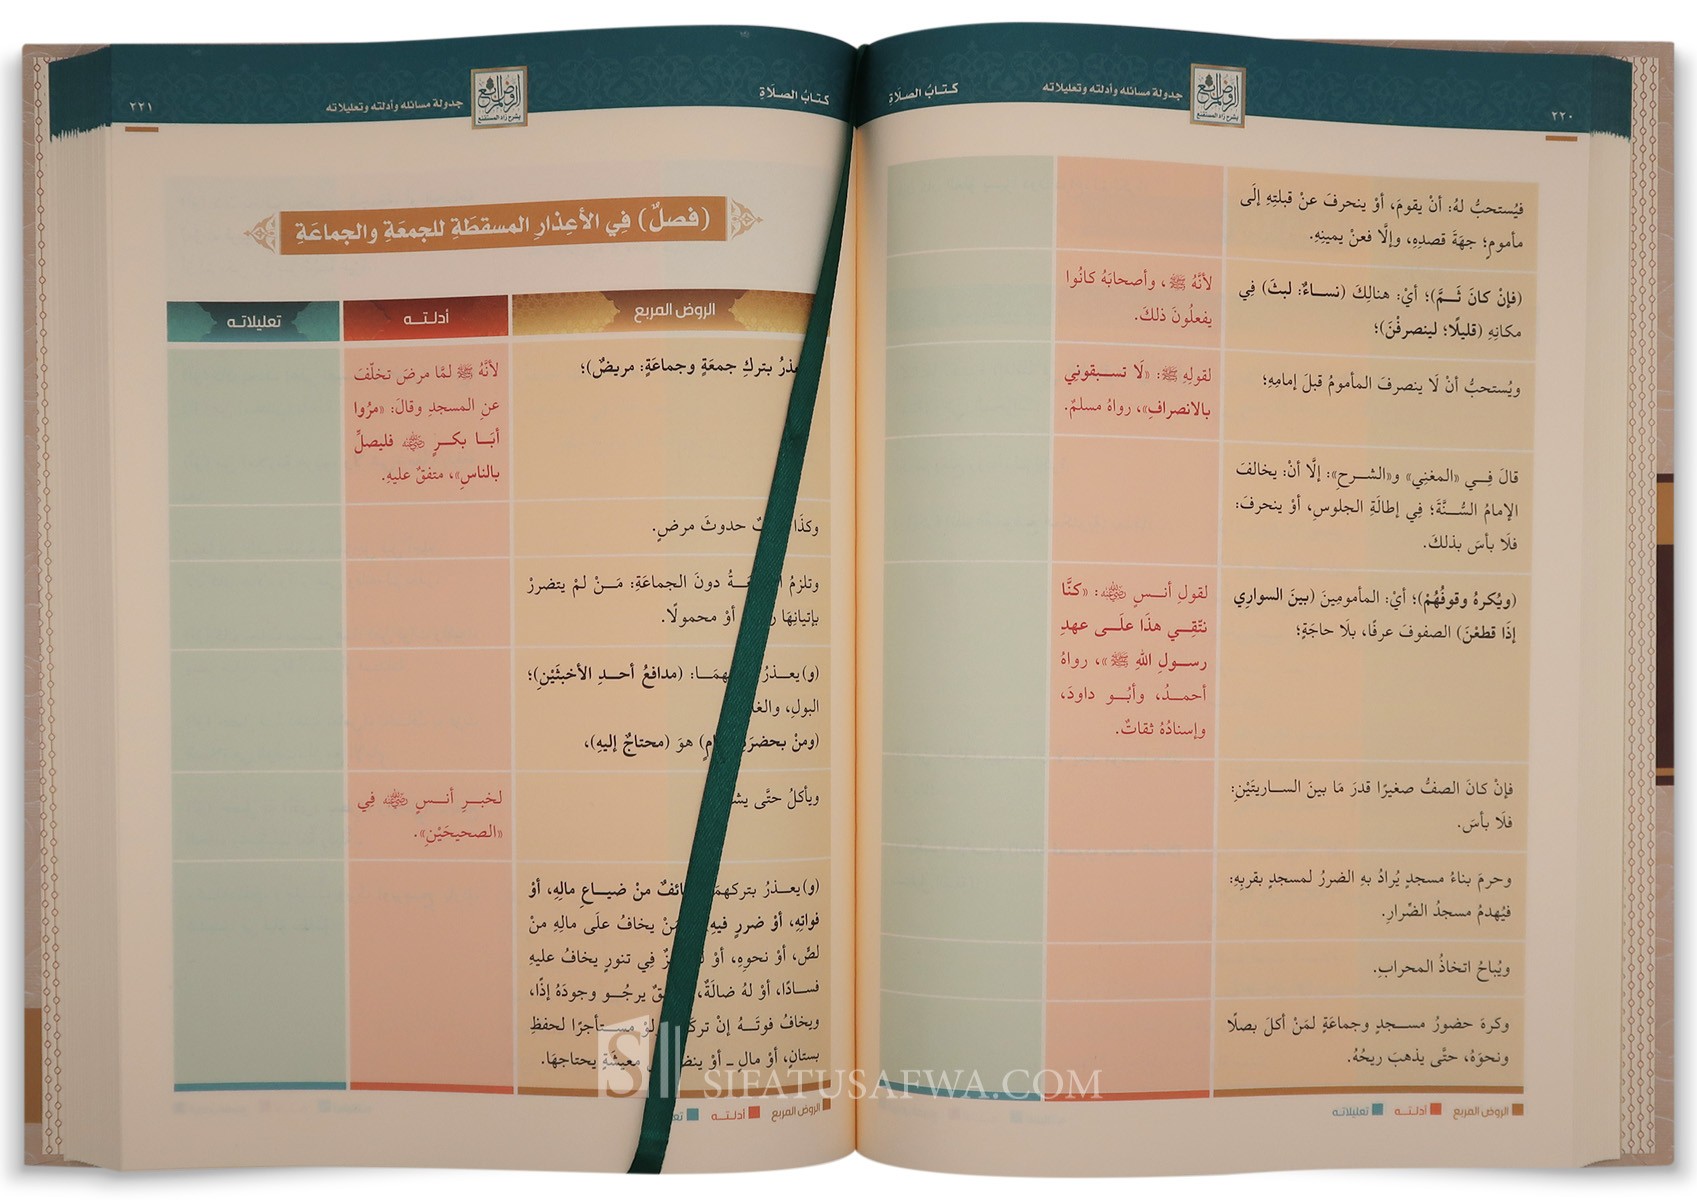 ٢٢٠
جدولة مسائله وأدلته وتعليلاته
كتابُ الصلَاةِ
فيُستحبُّ لهُ: أنْ يقومَ، أوْ ينحرفَ عنْ قبلتِهِ إلَى
مأمومٍ؛ جهَةَ قصدِهِ، وإلَّا فعنْ يمينِهِ.
(فإنْ كانَ ثَمَّ)؛ أيْ: هنالِكَ (نساءٌ: لبثَ) فِي
مكانِهِ (قليلًا؛ لينصرفْنَ)؛
لأنَّهُ ﷺ، وأصحابَهُ كانُوا
يفعلُونَ ذلكَ.
ويُستحبُّ أنْ لَا ينصرفَ المأمومُ قبلَ إمامِهِ؛
لقولِهِ ﷺ: «لَا تسبقونِي
بالانصرافِ»، رواهُ مسلمٌ.
قالَ فِي «المغنِي» و«الشرحِ»: إلَّا أنْ: يخالفَ
الإمامُ السُّنَّةَ؛ فِي إطالَةِ الجلوسِ، أوْ ينحرفَ:
فلَا بأسَ بذلكَ.
(ويُكرهُ وقوفُهُمْ)؛ أيْ: المأمومِينَ (بينَ السوارِي
إذَا قطعْنَ) الصفوفَ عرفًا، بلَا حاجَةٍ؛
لقولِ أنسٍ ﵁: «كنَّا
نتّقِي هذَا علَى عهدِ
رسولِ اللهِ ﷺ»، رواهُ
أحمدُ، وأبُو داودَ،
وإسنادُهُ ثقاتٌ.
فإنْ كانَ الصفُّ صغيرًا قدرَ مَا بينَ الساريتَيْنِ:
فلَا بأسَ.
وحرمَ بناءُ مسجدٍ يُرادُ بهِ الضررُ لمسجدٍ بقربِهِ:
فيُهدمُ مسجدُ الضِّرارِ.
ويُباحُ اتخاذُ المحرابِ.
وكرهَ حضورُ مسجدٍ وجماعَةٍ لمَنْ أكلَ بصلًا
ونحوَهُ، حتَّى يذهبَ ريحُهُ.
الروض المربع
أدلتـه
تعليلاته
كتابُ الصلَاةِ
جدولة مسائله وأدلته وتعليلاته
٢٢١
(فصلٌ) فِي الأعذارِ المسقطَةِ للجمعَةِ والجماعَةِ
الروض المربع
أدلتـه
تعليلاته
بتركِ جمعَةٍ وجماعَةٍ: مريضٌ)؛
لأنَّهُ ﷺ لمَّا مرضَ تخلَّفَ
عنِ المسجدِ وقالَ: «مرُوا
أبَا بكرٍ ﵁ فليصلِّ
بالناسِ»، متفقٌ عليهِ.
وكذَا حدوثَ مرضٍ.
وتلزمُ دونَ الجماعَةِ: مَنْ لمْ يتضررْ
بإتيانِهَا أوْ محمولًا.
(و) يعذرُ (مدافعُ أحدِ الأخبثَيْنِ)؛
البولِ،
(ومنْ هوَ (محتاجٌ إليهِ)،
ويأكلُ حتَّى
لخبرِ أنسٍ ﵁ فِي
«الصحيحَيْنِ».
(و) يعذرُ بتركهِمَا منْ ضياعِ مالِهِ، أوْ
فواتِهِ، أوْ ضررٍ فيهِ يخافُ علَى مالِهِ منْ
لصٍّ، أوْ نحوِهِ، أوْ فِي تنورٍ يخافُ عليهِ
فسادًا، أوْ لهُ ضالَةٌ، يرجُو وجودَهُ إذًا،
ويخافُ فوتَهُ إنْ مستأجرًا لحفظِ
بستانٍ، أوْ مالٍ ـ أوْ معيشَةٍ يحتاجهَا.
الروض المربع
أدلتـه
SIFATUSAFWA.COM